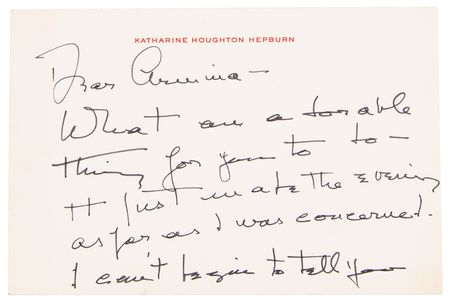 KATHARINE HOUGHTON HEPBURN
Dear Armina —
What an adorable
thing for you to do —
It just made the evening
as far as I was concerned.
I can't begin to tell you